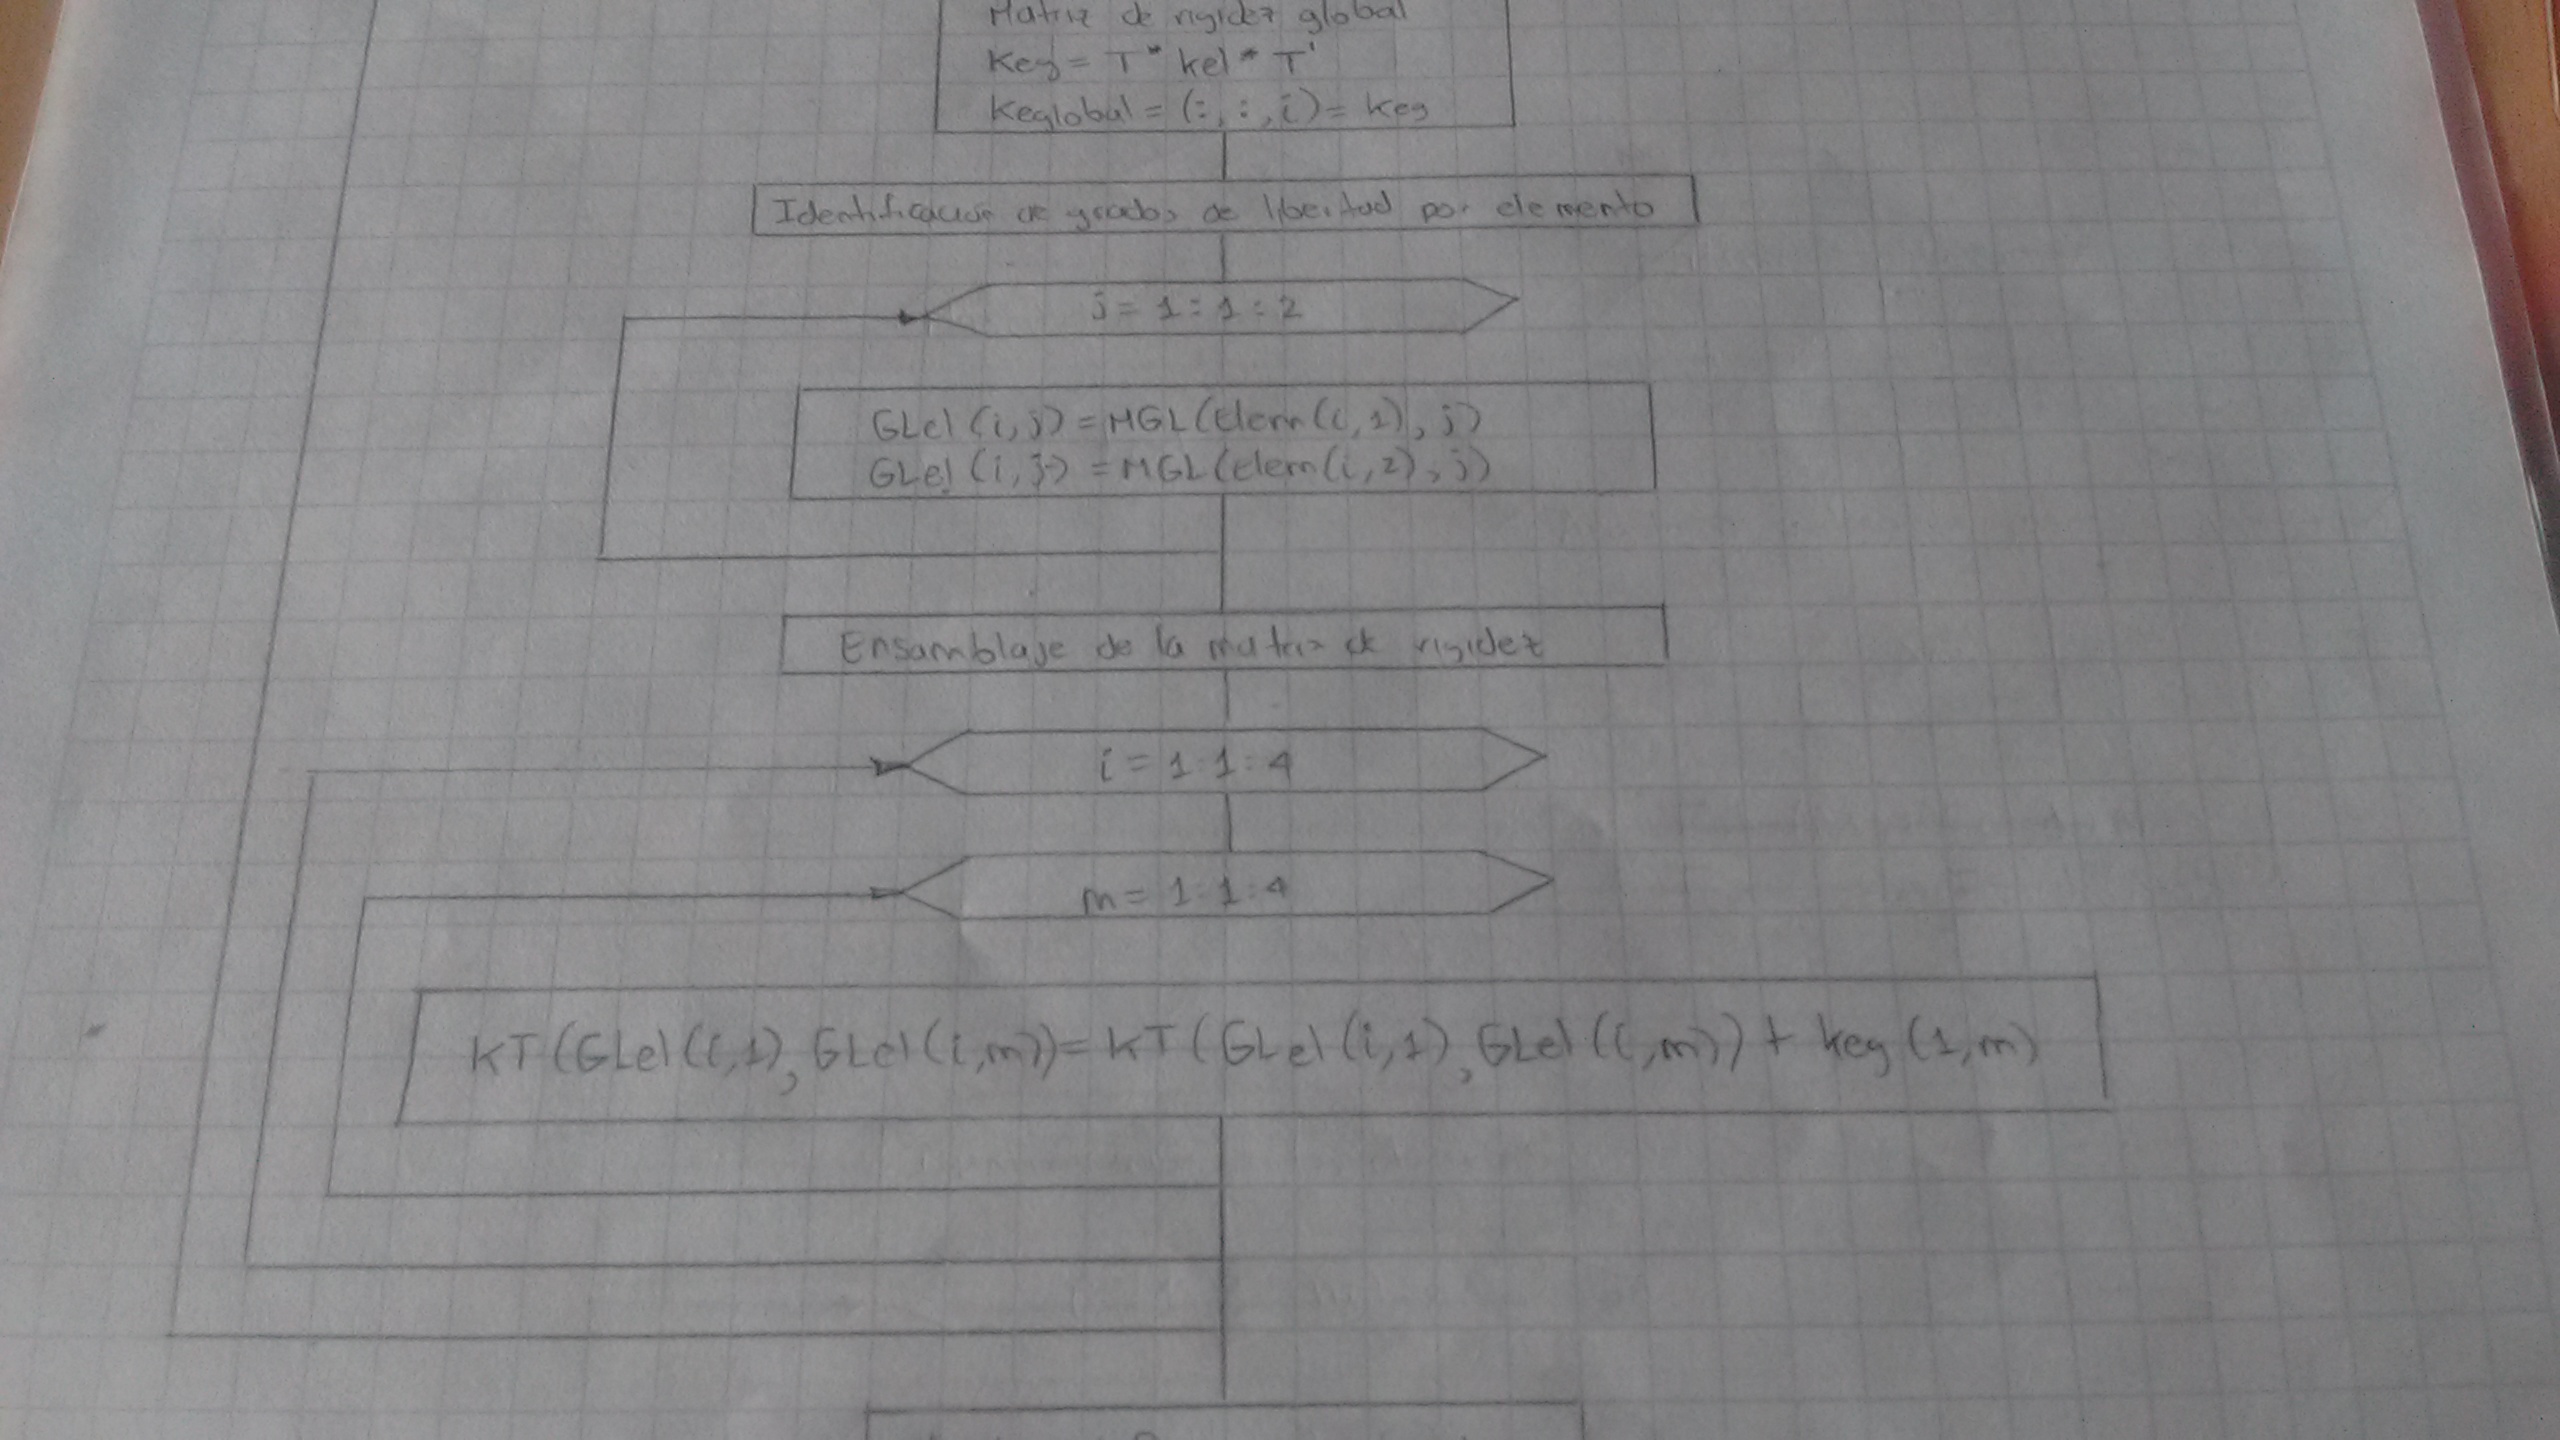 Matriz de rigidez global
Keg = T * kel * T'
Keglobal = (:, :, i) = keg
Identificación de grados de libertad por elemento
j = 1 : 1 : 2
GLel (i, j) = MGL (Elem (i, 1), j)
GLel (i, j) = MGL (elem (i, 2), j)
Ensamblaje de la matriz de rigidez
i = 1 : 1 : 4
m = 1 : 1 : 4
KT (GLel (i, 1), GLel (i, m)) = KT (GLel (i, 1), GLel (i, m)) + keg (1, m)